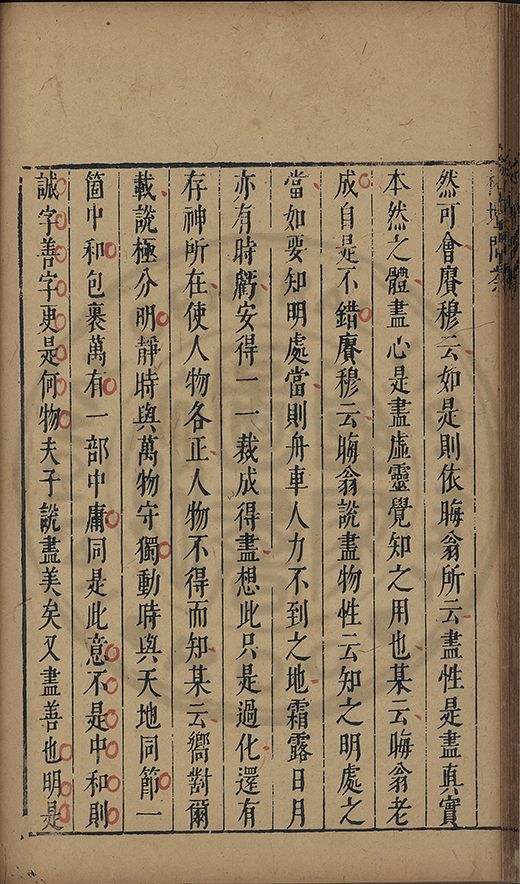 然可會賡穆云如是則依晦翁所云盡性是盡真實
本然之體盡心是盡虛靈覺知之用也某云晦翁老
成自是不錯賡穆云晦翁說盡物性云知之明處之
當如要知明處當則舟車人力不到之地霜露日月
亦有時虧安得一一裁成得盡想此只是過化還有
存神所在使人物各正人物不得而知某云嚮對爾
載說極分明靜時與萬物守獨動時與天地同節一
箇中和包裹萬有一部中庸同是此意不是中和則
誠字善字更是何物夫子說盡美矣又盡善也明是